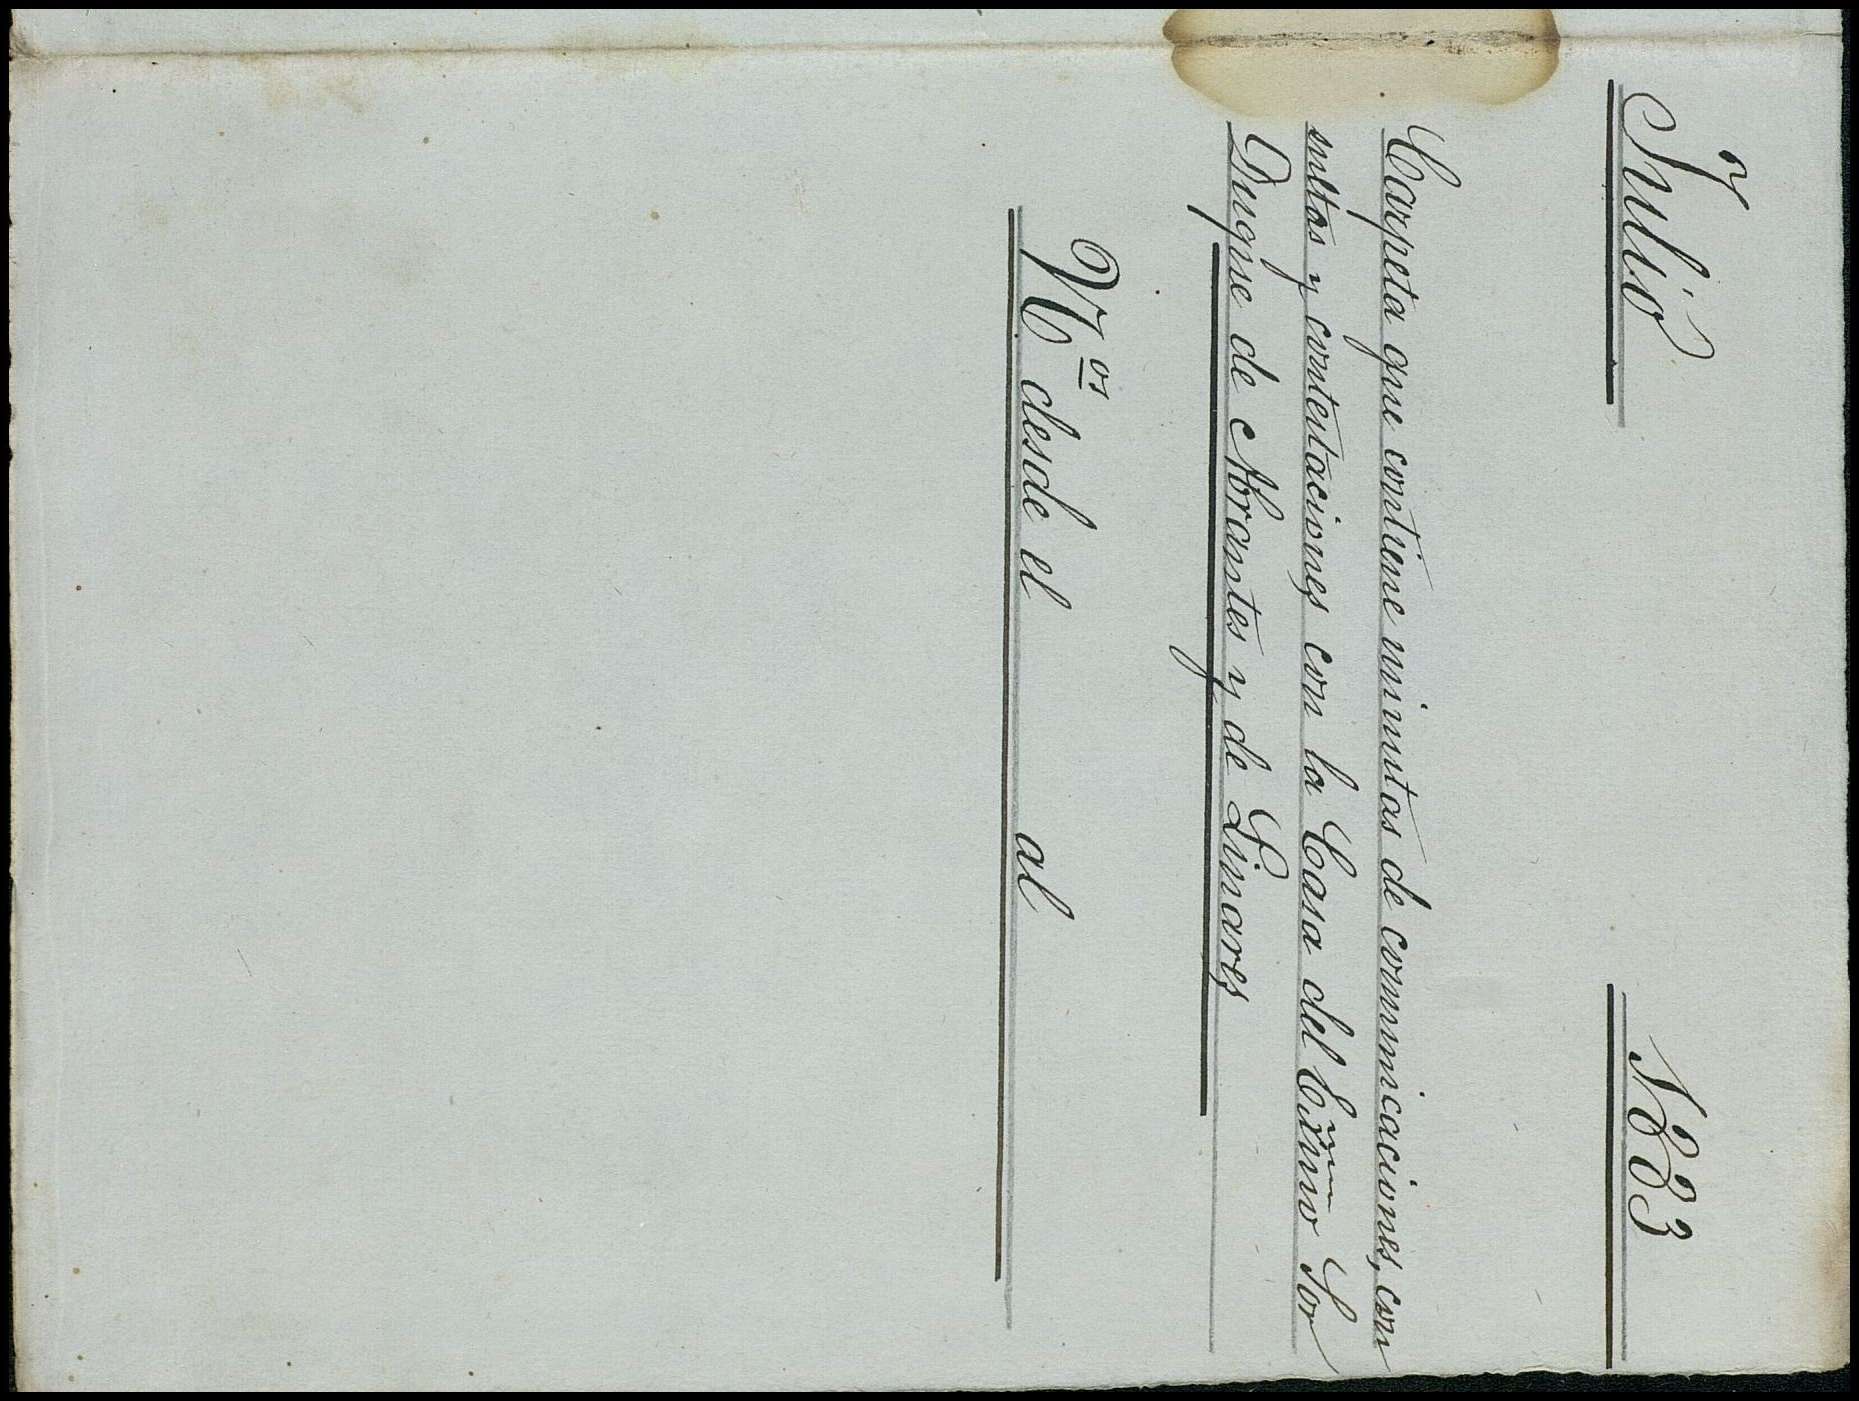 Julio 1883
Carpeta que contiene minutas de comunicaciones, con
sultas y contestaciones con la Casa del Exmo Sor
Duque de Abrantes y de Linares
Nos desde el al